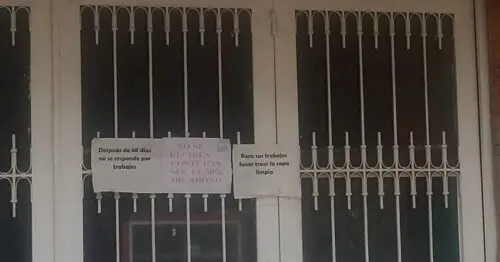 Después de 30 dias
no se responde por
trabajos
NO SE
RECIBEN
COSTURAS
SIN EL 50%
DE ABONO
Para sus trabajos
favor traer la ropa
limpia